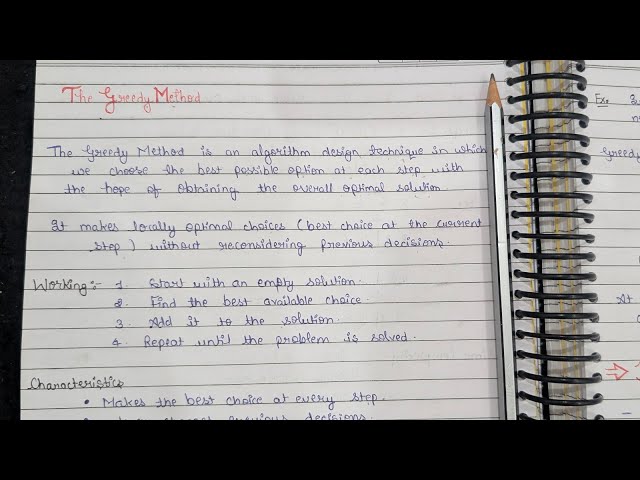 The Greedy Method
The Greedy Method is an algorithm design technique in which
we choose the best possible option at each step with
the hope of obtaining the overall optimal solution
It makes locally optimal choices (best choice at the current
step) without reconsidering previous decisions.
Working:- 1. Start with an empty solution.
2. Find the best available choice.
3. Add it to the solution.
4. Repeat until the problem is solved.
Characteristics
• Makes the best choice at every step.
previous decisions.
Ex.
Greedy
At